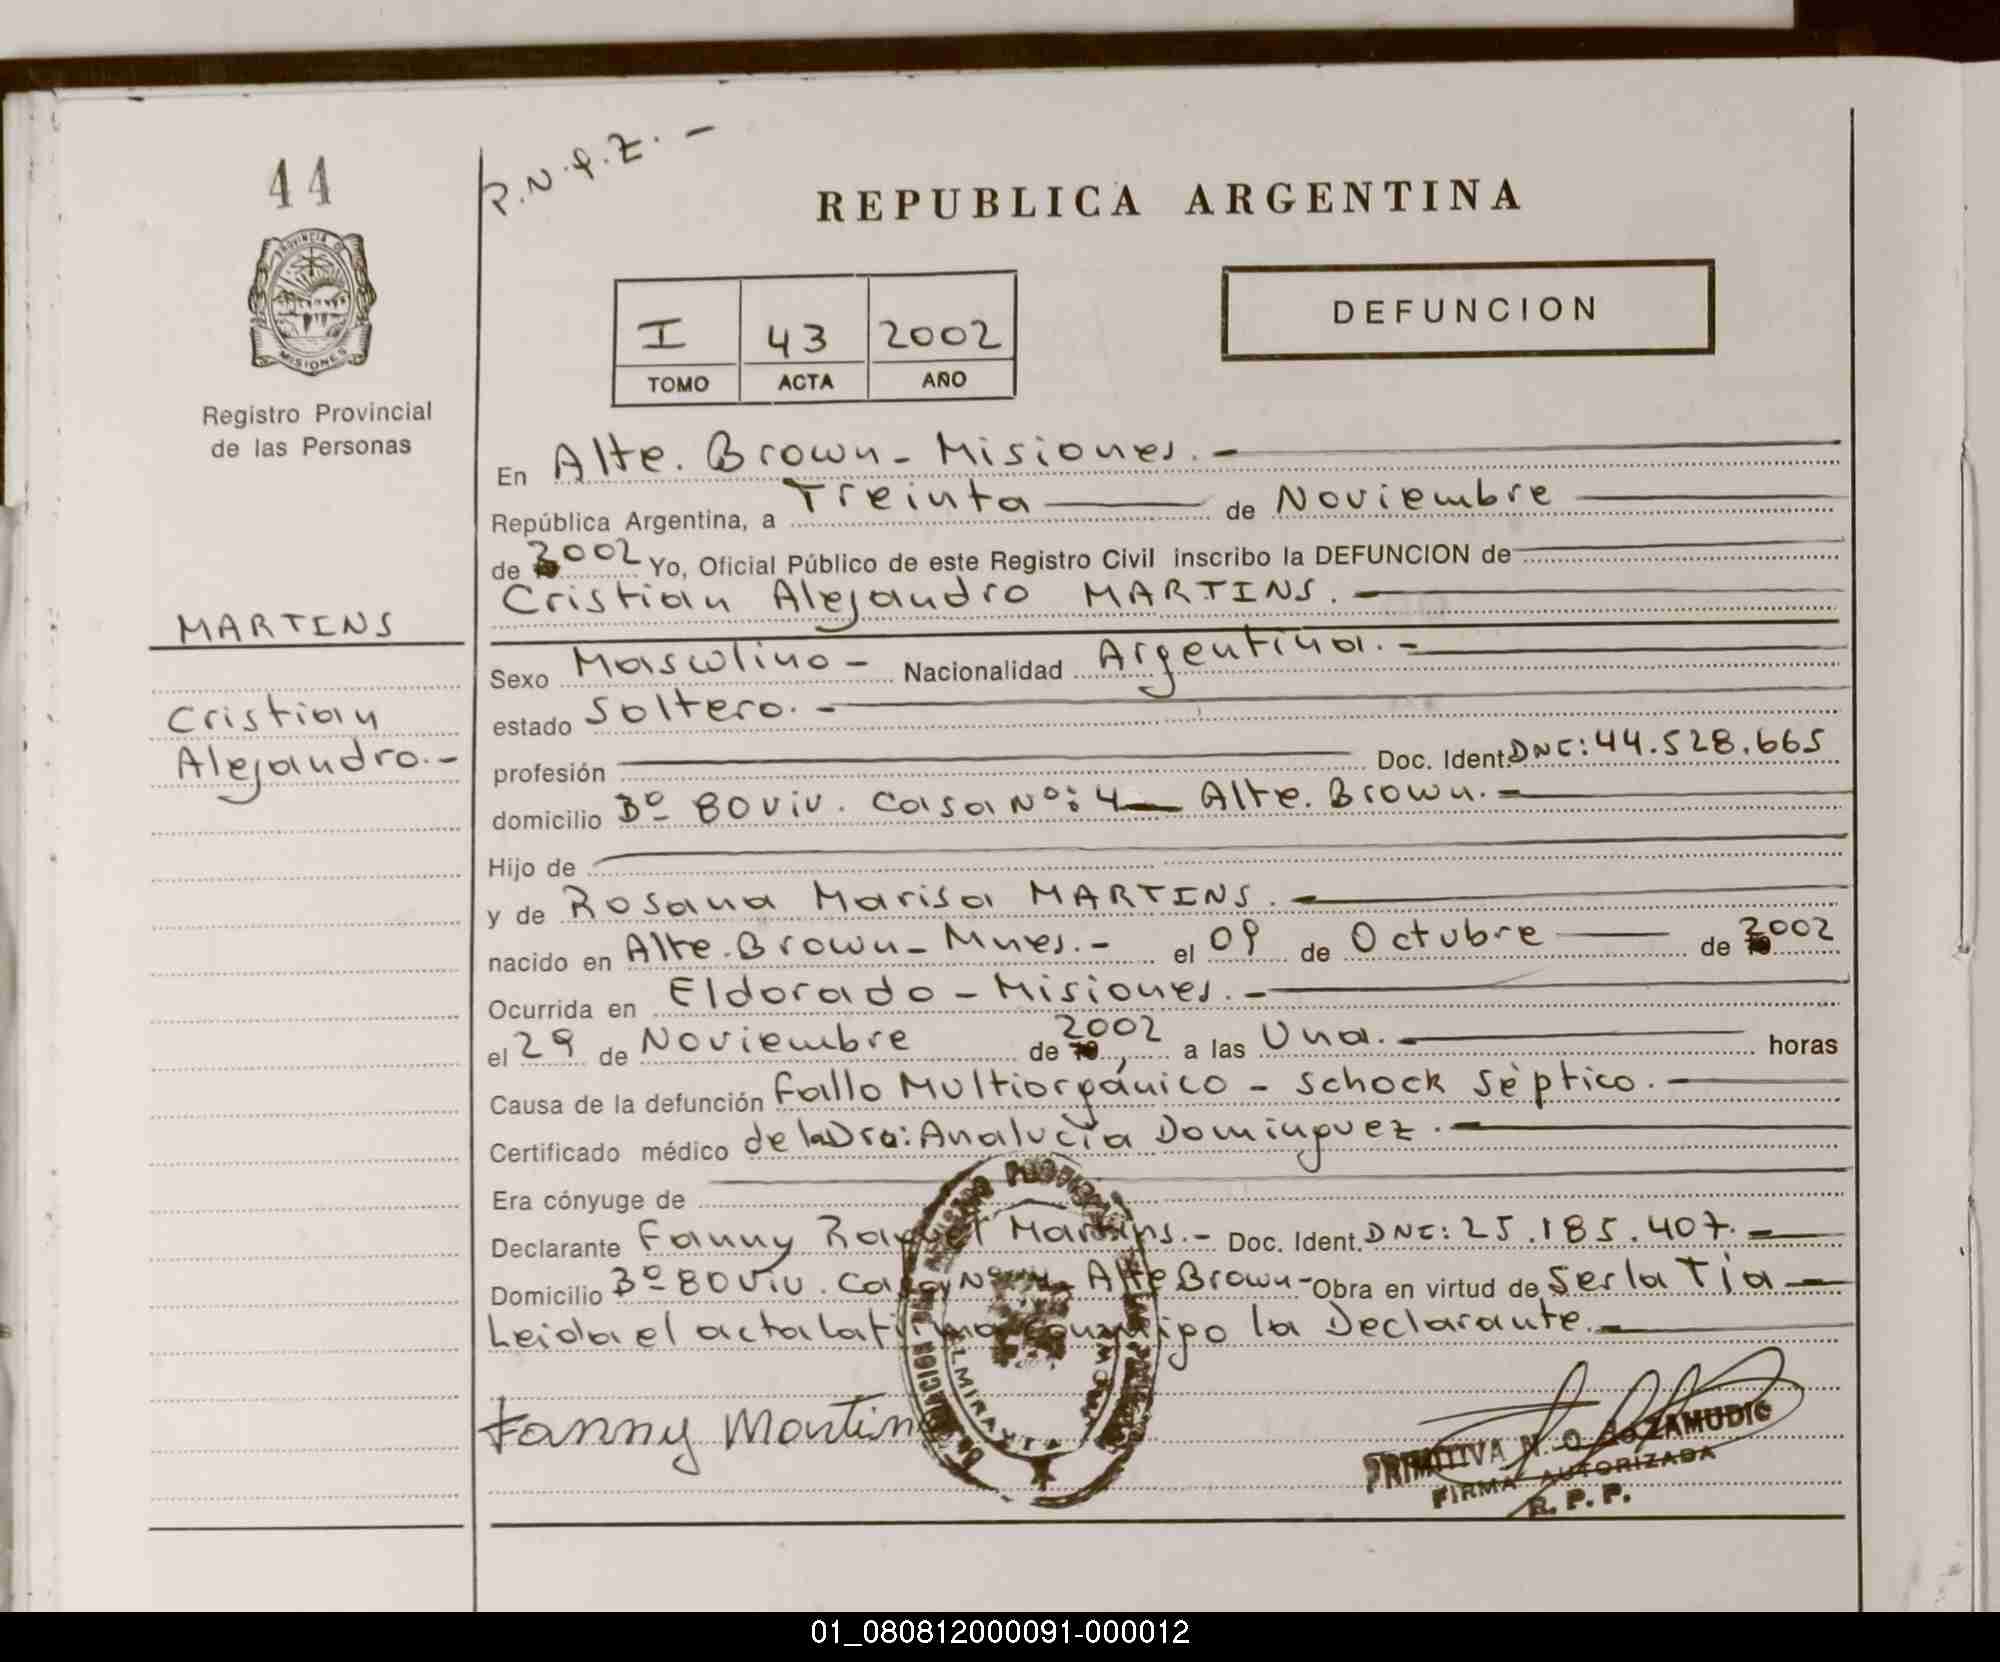 44
P.N.f.Z. -
REPUBLICA ARGENTINA
PROVINCIA D
MISIONES
Registro Provincial
de las Personas
I 43 2002
TOMO ACTA AÑO
DEFUNCION
En Alte. Brown - Misiones. -
República Argentina, a Treinta de Noviembre
de 2002 Yo, Oficial Público de este Registro Civil inscribo la DEFUNCION de
Cristian Alejandro MARTINS. -
MARTINS
Cristian
Alejandro. -
Sexo Masculino - Nacionalidad Argentina. -
estado Soltero. -
profesión Doc. Ident. DNI: 44.528.665
domicilio Bº 80 viv. Casa Nº: 4 - Alte. Brown. -
Hijo de
y de Rosana Marisa MARTINS. -
nacido en Alte. Brown - Mnes. - el 09 de Octubre de 2002
Ocurrida en Eldorado - Misiones. -
el 29 de Noviembre de 2002, a las Una. - horas
Causa de la defunción Fallo Multiorgánico - Schock Séptico. -
Certificado médico de la Dra: Analucía Dominguez. -
Era cónyuge de
Declarante Fanny Raquel Martins. - Doc. Ident. DNI: 25.185.407. -
Domicilio Bº 80 viv. Casa Nº 4 - Alte Brown - Obra en virtud de Ser la Tía -
Leida el acta la firma conmigo la Declarante. -
Fanny Martin
PRIMITIVA N. O. de ZAMUDIO
FIRMA AUTORIZADA
R. P. P.
01_080812000091-000012